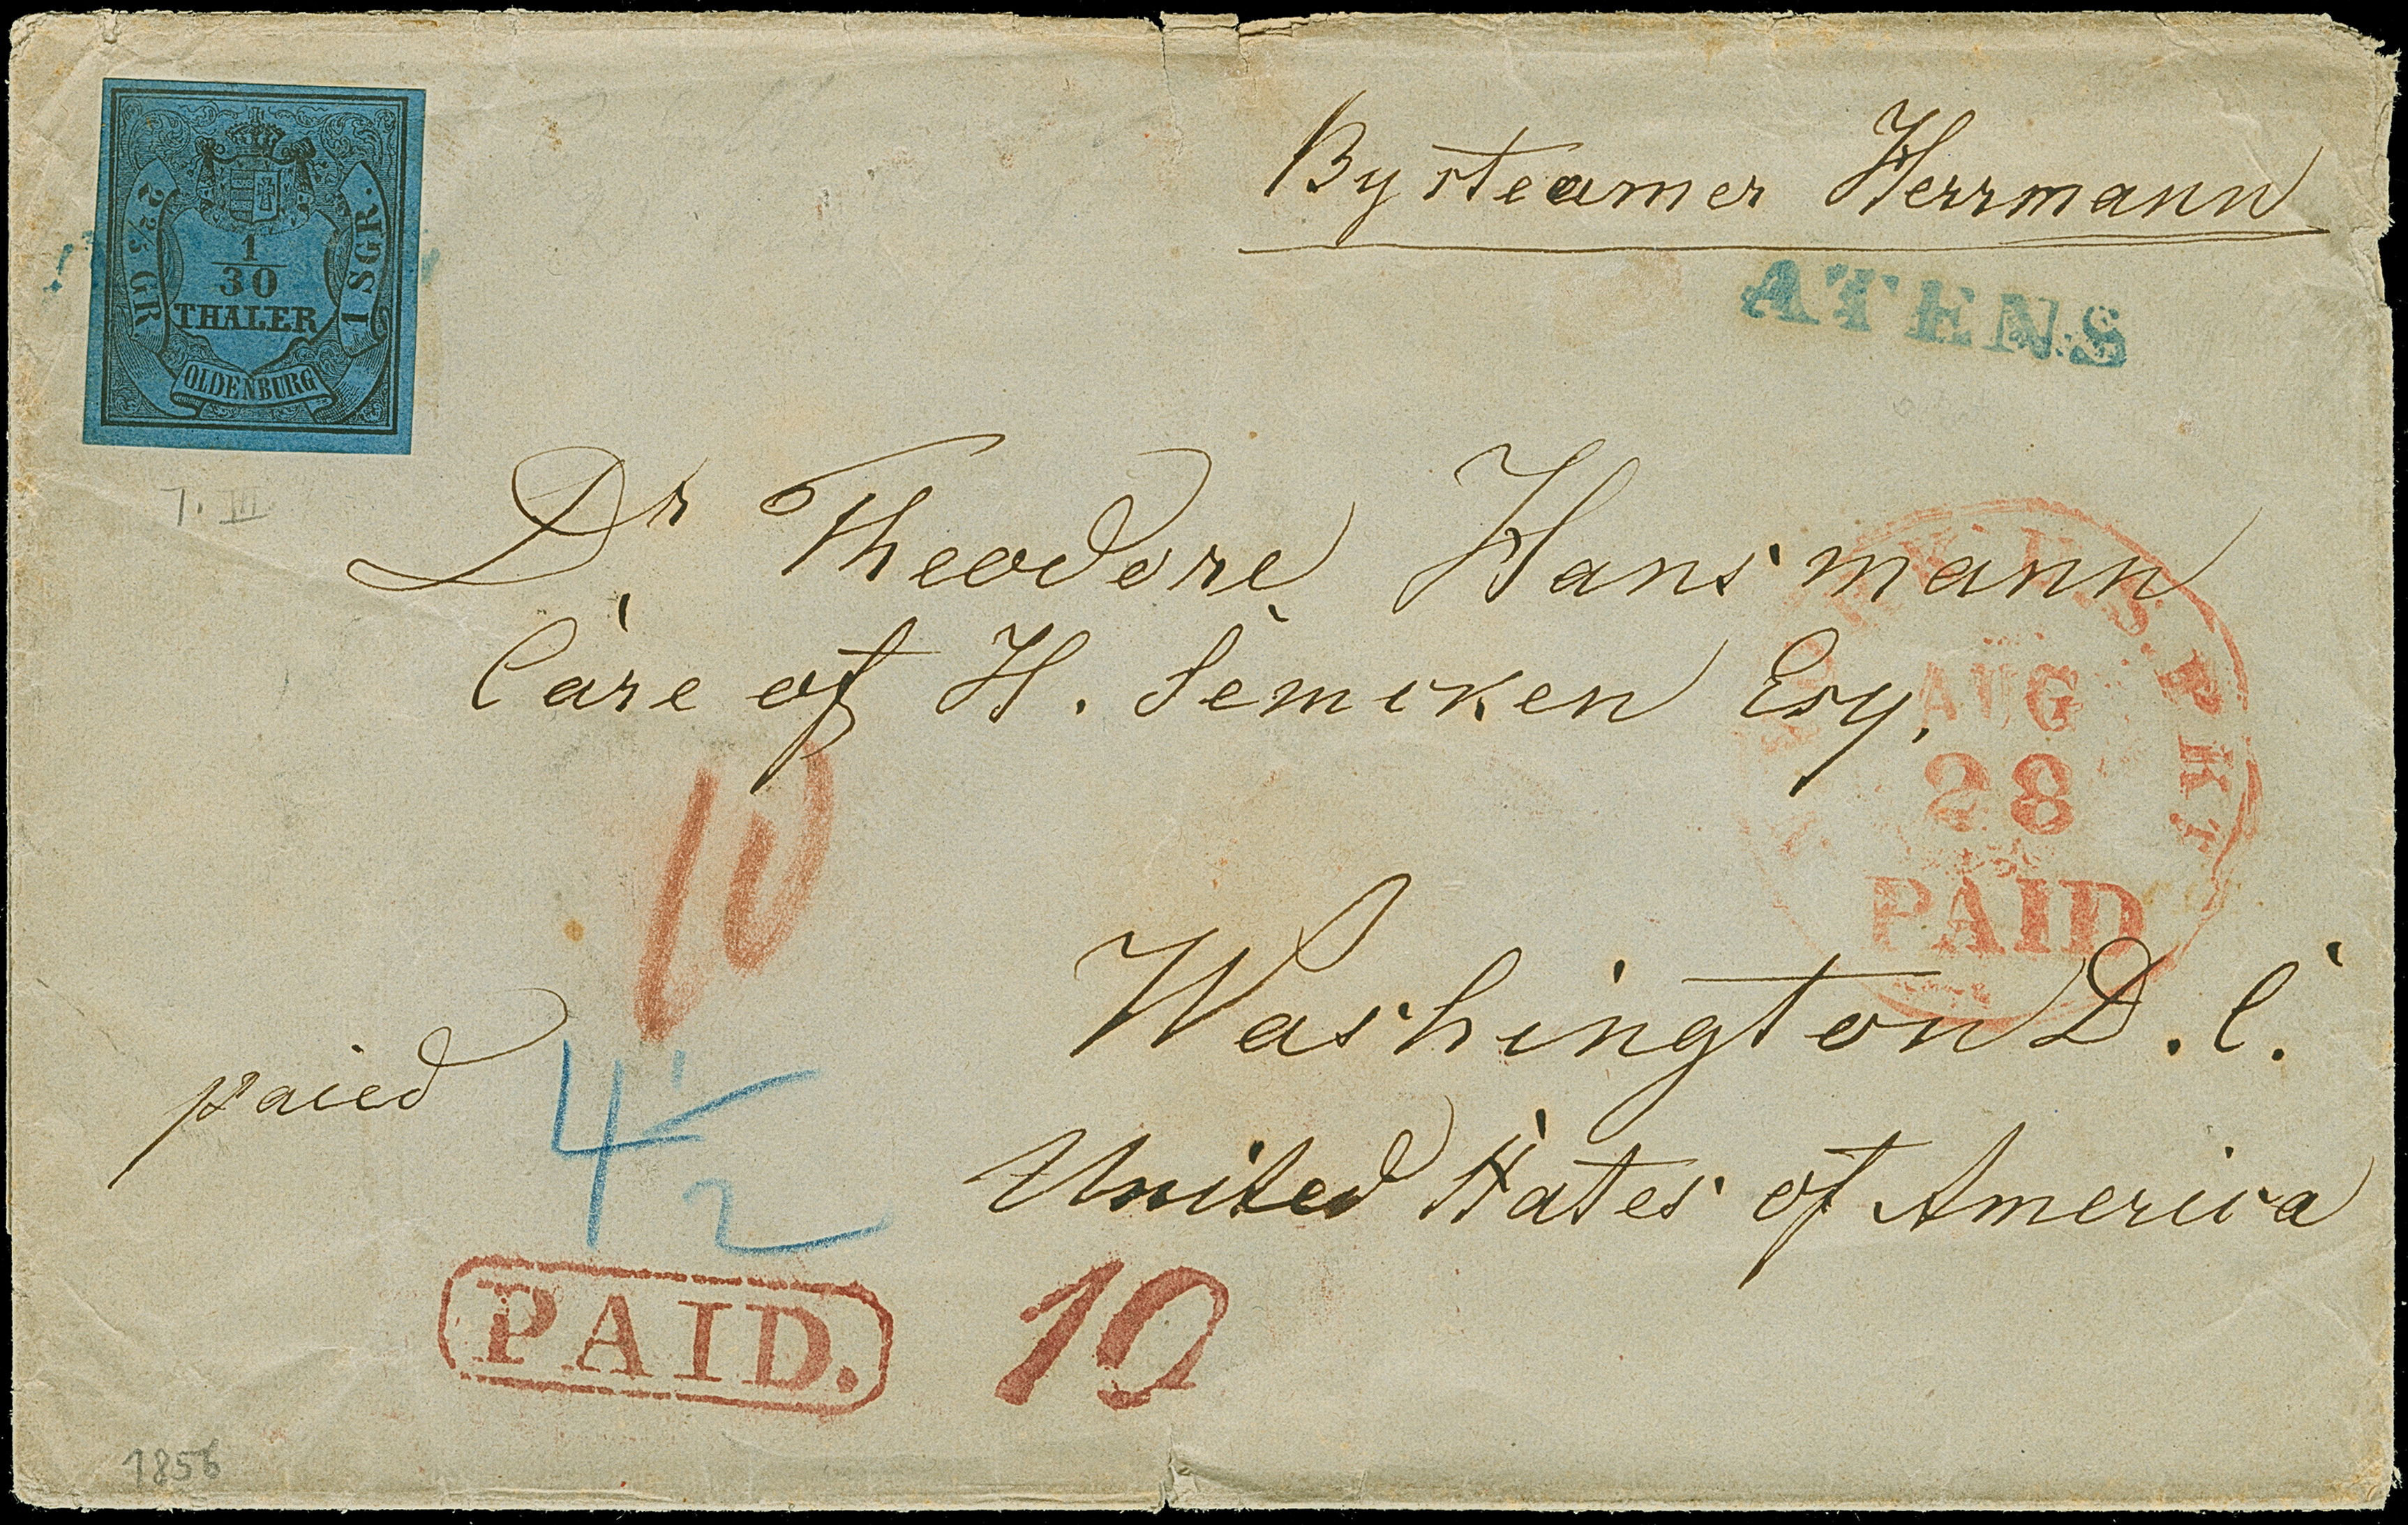 By steamer Herrmann
ATENS
2 2/5 GR
1 SGR.
1/30
THALER
OLDENBURG
T. III
Dr. Theodore Hansmann
Care of H. Semcken Esq.
U.S. PKT
AUG
28
PAID
10
Washington D. C.
paied
4 1/2
United States of America
PAID.
10
1856